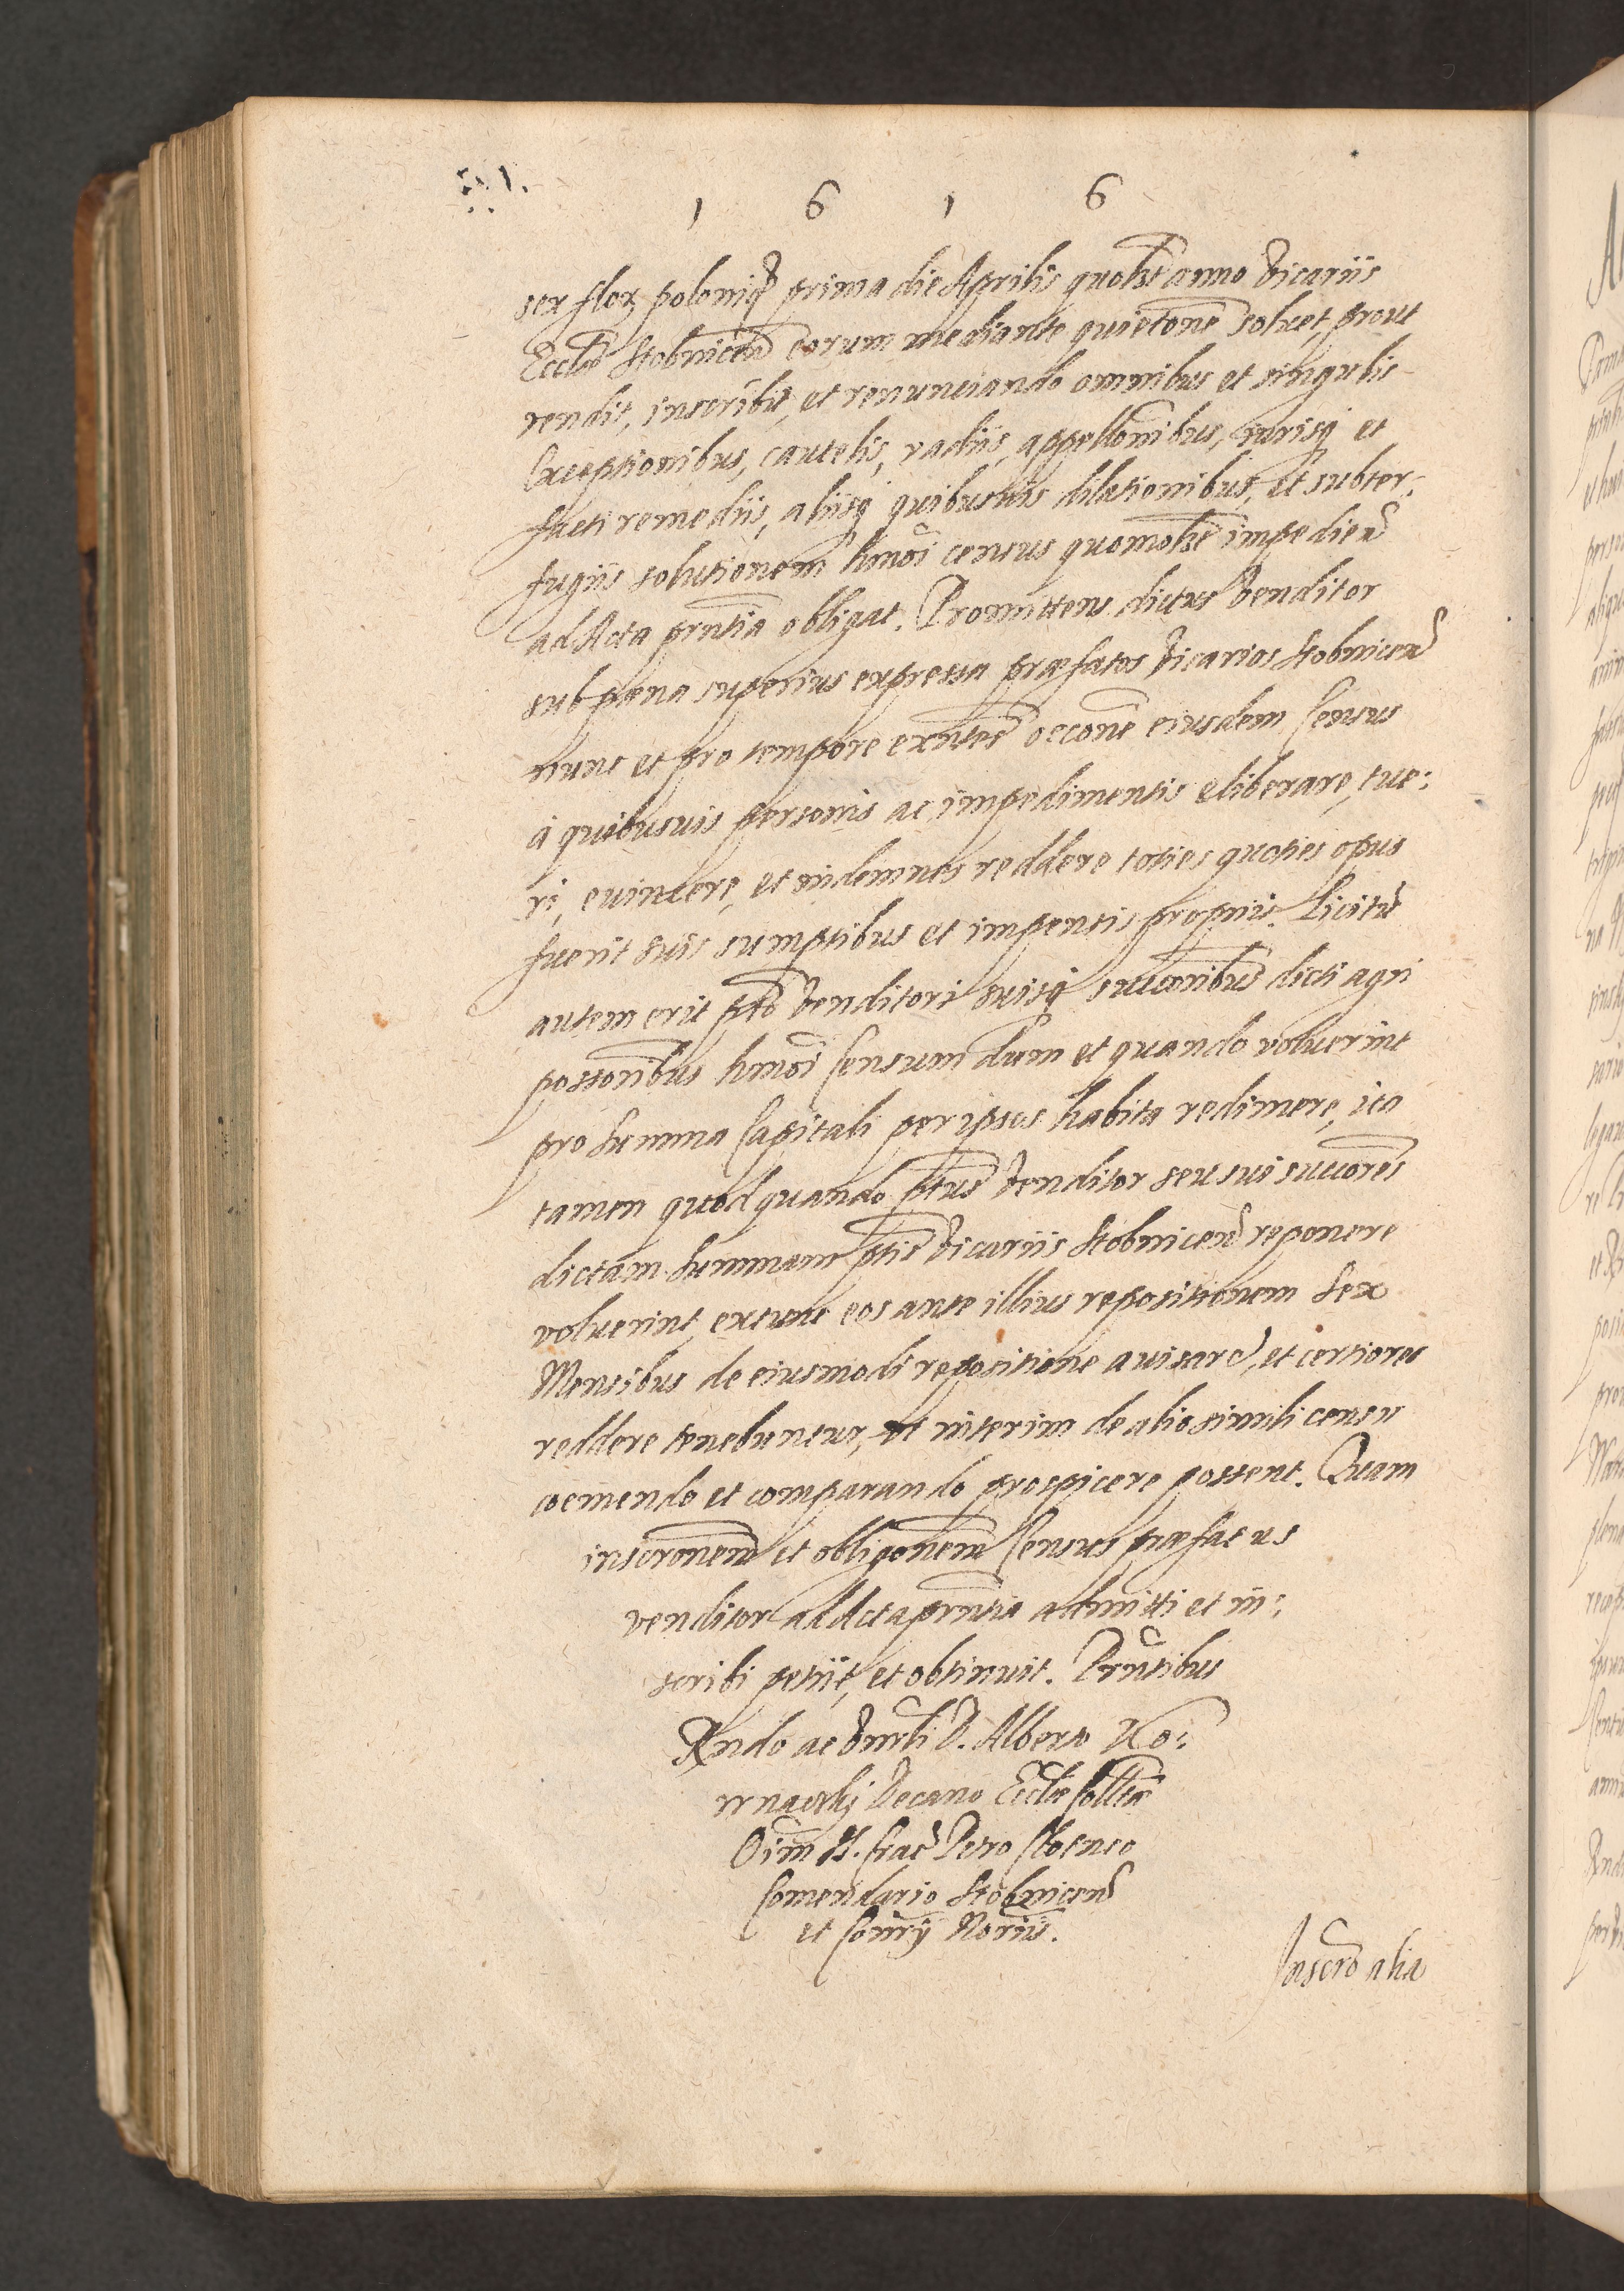 1 6 1 6
sex flor poloniq prima die Aprilis quolt anno vicariis
Ecclæ Stobnicen eorum mediante quietone soluet, prout
vendit, inscribit, et renunciando omnibus et singulis
Exceptionibus, cautelis, vadiis, appellonibus, iurisq et
facti remediis, aliisq quibusuis dilationibus, et subter:
fugiis solutionem hmoi census quomolt impedien
ad Acta prntia obligat. Promittens dictus venditor
sub pæna superius expressa præfatos vicarios Stobnicen
nunc et pro tempore exntes oecone eiusdem Census
à quibusuis personis ac impedimentis eliberare, tue:
ri, euincere, et indemnes reddere toties quoties opus
fuerit suis sumptibus et impensis propriis. Licitu
autem erit pto venditori suisq succoribus dicti agri
possoribus hmoi Censum dum et quando voluerint
pro summa Capitali per ipsos habita redimere, ita
tamen quod quando ptus venditor seu sui succores
dictam summam ptis vicariis Stobnicen reponere
voluerint, extunc eos ante illius repositionem sex
Mensibus de eiusmodi repositione auisare, et certiores
reddere tenebuntur, ut interim de alio simili censu
coemendo et comparando prospicere possent. Quam
inscronem et obligonem Census præfatus
venditor ad Acta prntia admitti et in:
scribi petiit, et obtinuit. Prntibus
Rndo ac Vnrli D. Alberto
Decano Ecclæ Collte
Oim S. Crac Petro
Comendario Stobnicen
et Notriis.
Inscro alia